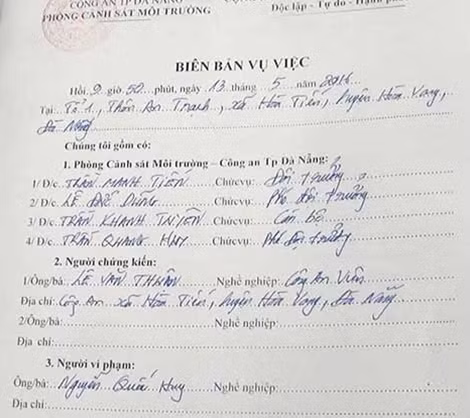 CÔNG AN TP ĐÀ NẴNG
PHÒNG CẢNH SÁT MÔI TRƯỜNG
Độc lập - Tự do - Hạnh
BIÊN BẢN VỤ VIỆC
Hồi 9 giờ 50 phút, ngày 13 tháng 5 năm 2016
Tại: Tổ 1, Thôn An Trạch, xã Hòa Tiến, huyện Hòa Vang,
Đà Nẵng
Chúng tôi gồm có:
1. Phòng Cảnh sát Môi trường – Công an Tp Đà Nẵng:
1/ Đ/c TRẦN MẠNH TIẾN Chức vụ: Đội trưởng
2/ Đ/c LÊ ĐỨC DŨNG Chức vụ: Phó đội trưởng
3/ Đ/c TRẦN KHÁNH Chức vụ: Cán bộ
4/ Đ/c TRẦN QUANG HUY Chức vụ: Phó đội trưởng
2. Người chứng kiến:
1/Ông/bà: LÊ VĂN THUẬN Nghề nghiệp: Công An Viên
Địa chỉ: Công An xã Hòa Tiến, huyện Hòa Vang, Đà Nẵng
2/Ông/bà: Nghề nghiệp:
Địa chỉ:
3. Người vi phạm:
Ông/bà: Nguyễn Quốc Huy Nghề nghiệp:
Địa chỉ: